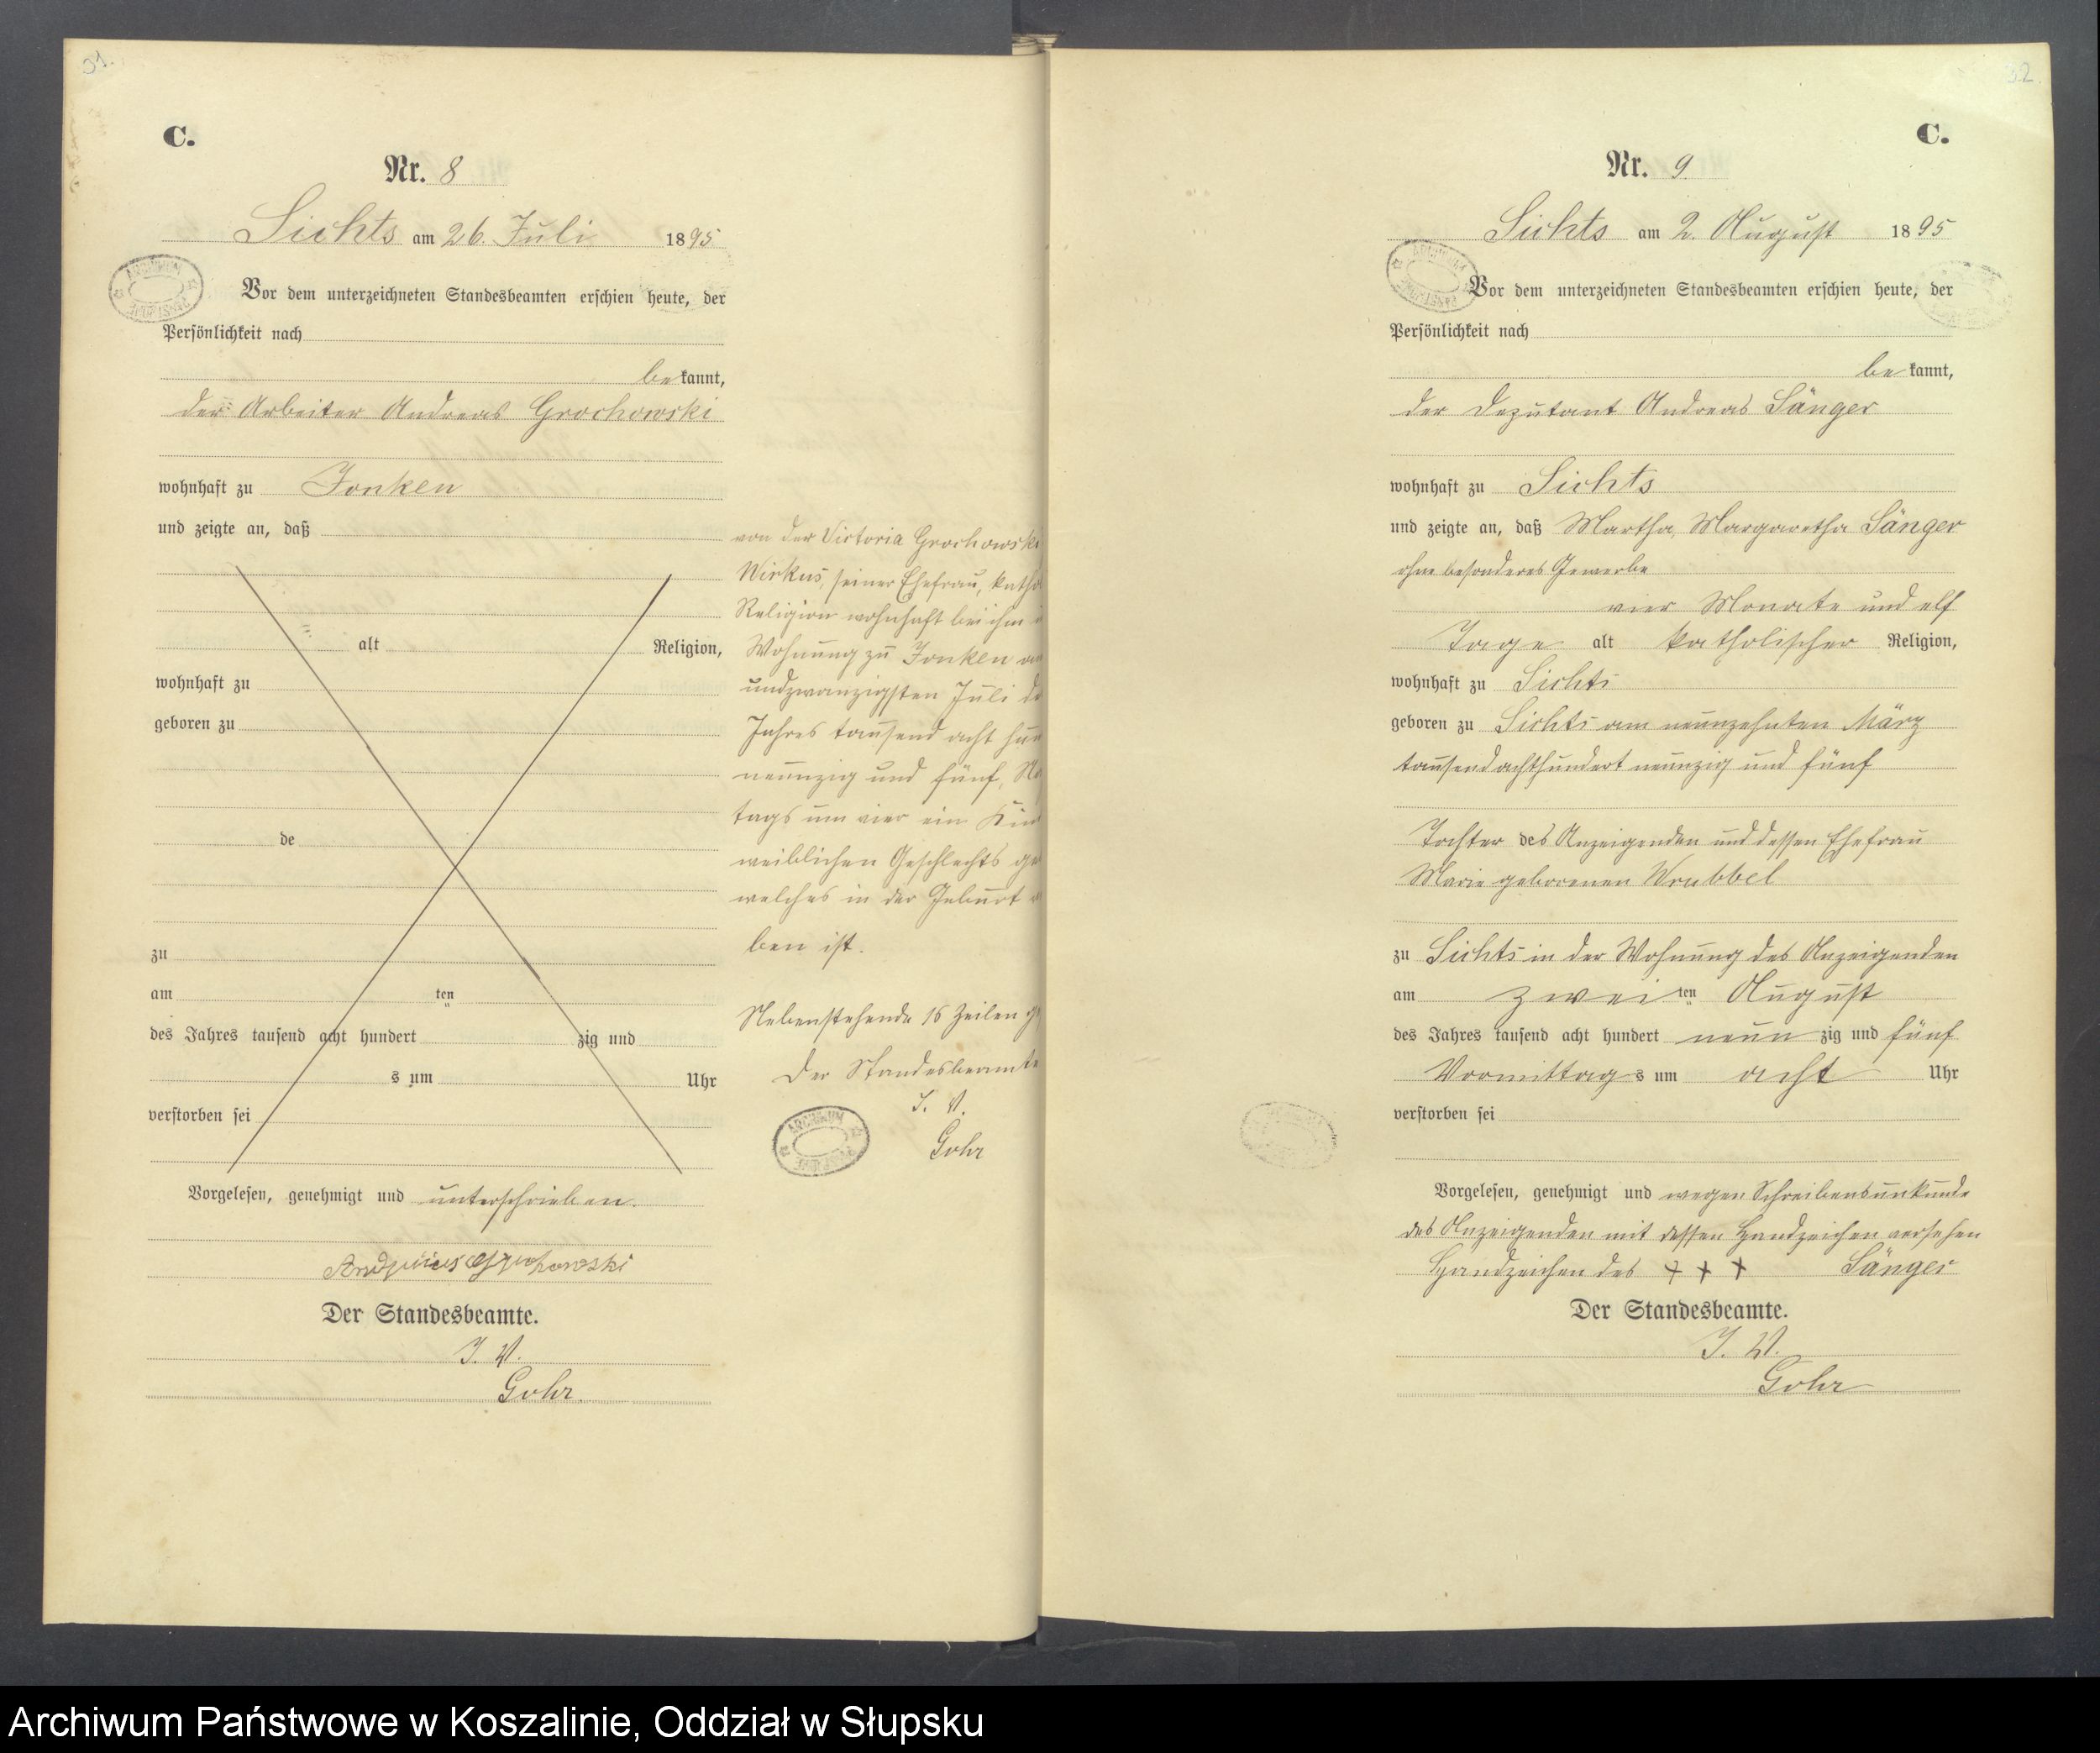 31.
C.
Nr. 8
Lichts am 26. Juli 1895
Vor dem unterzeichneten Standesbeamten erschien heute, der
Persönlichkeit nach
bekannt,
der Arbeiter Andreas Grochowski
wohnhaft zu Jonken
und zeigte an, daß
alt Religion,
wohnhaft zu
geboren zu
de
zu
am ten
des Jahres tausend acht hundert zig und
s um Uhr
verstorben sei
Vorgelesen, genehmigt und unterschrieben.
Andreas Grochowski
Der Standesbeamte.
J. V.
Gohr.
von der Victoria Grochowski
Wirkus, seiner Ehefrau, katho
Religion wohnhaft bei ihm i
Wohnung zu Jonken am
undzwanzigsten Juli de
Jahres tausend acht hun
neunzig und fünf, Na
tags um vier ein Kin
weiblichen Geschlechts ge
welches in der Geburt
ben ist.
Nebenstehende 16 Zeilen ge
Der Standesbeamte
J. V.
Gohr
ARCHIWUM
32
C.
Nr. 9.
Lichts am 2. August 1895
ARCHIWUM
Vor dem unterzeichneten Standesbeamten erschien heute, der
Persönlichkeit nach
bekannt,
der Deputant Andreas Sänger
wohnhaft zu Lichts
und zeigte an, daß Martha, Margaretha Sänger
ohne besonderes Gewerbe
vier Monate und elf
Tage alt katholischer Religion,
wohnhaft zu Lichts
geboren zu Lichts am neunzehnten März
tausendachthundert neunzig und fünf
Tochter des Anzeigenden und dessen Ehefrau
Marie geborenen Wrubbel
zu Lichts in der Wohnung des Anzeigenden
am zweiten August
des Jahres tausend acht hundert neunzig und fünf
Vormittags um acht Uhr
verstorben sei
Vorgelesen, genehmigt und wegen Schreibensunkunde
des Anzeigenden mit dessen Handzeichen versehen
Handzeichen des + + + Sänger
Der Standesbeamte.
J. V.
Gohr
Archiwum Państwowe w Koszalinie, Oddział w Słupsku